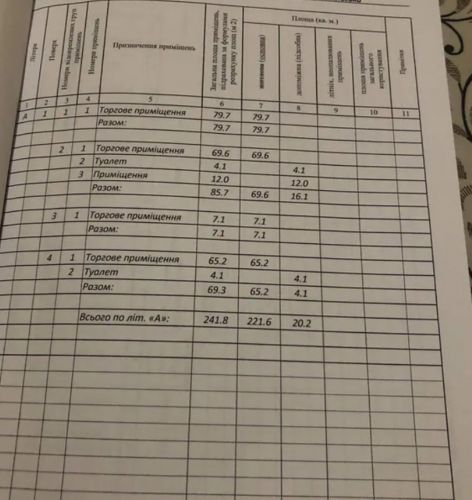 Площа (кв. м.)
Літера
Поверх
Номери відокремлених груп приміщень
Номери приміщень
Призначення приміщень
Загальна площа приміщень, підрахована за формулами розрахунку площ (м 2)
основна
допоміжна (підсобна)
літніх, неопалюваних приміщень
площа приміщень загального користування
Примітки
1 2 3 4 5 6 7 8 9 10 11
А 1 1 1 Торгове приміщення 79.7 79.7
Разом: 79.7 79.7
2 1 Торгове приміщення 69.6 69.6
2 Туалет 4.1 4.1
3 Приміщення 12.0 12.0
Разом: 85.7 69.6 16.1
3 1 Торгове приміщення 7.1 7.1
Разом: 7.1 7.1
4 1 Торгове приміщення 65.2 65.2
2 Туалет 4.1 4.1
Разом: 69.3 65.2 4.1
Всього по літ. «А»: 241.8 221.6 20.2